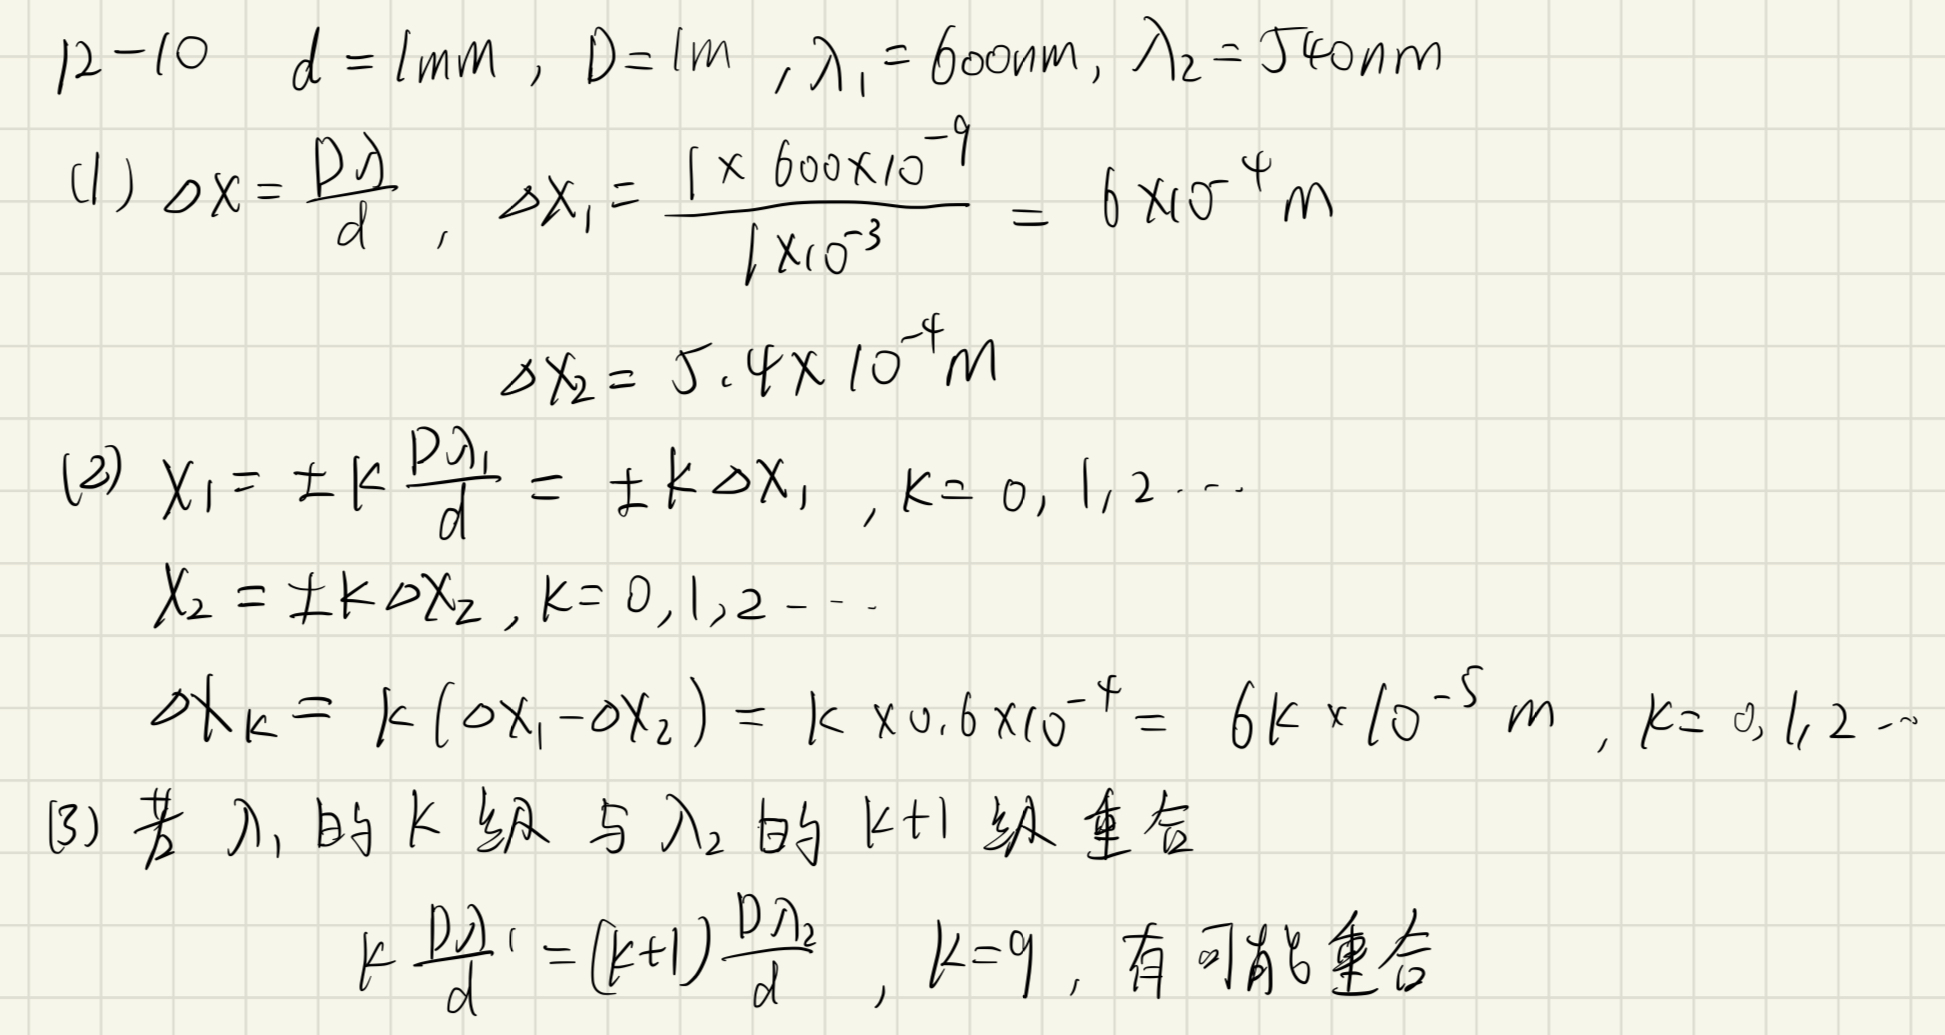 12-10 d=1mm, D=1m, λ₁=600nm, λ₂=540nm
(1) Δx=Dλ/d, Δx₁=(1×600×10⁻⁹)/(1×10⁻³)=6×10⁻⁴m
Δx₂=5.4×10⁻⁴m
(2) x₁=±k Dλ₁/d=±kΔx₁, k=0,1,2...
x₂=±kΔx₂, k=0,1,2---
Δx_k=k(Δx₁-Δx₂)=k×0.6×10⁻⁴=6k×10⁻⁵m, k=0,1,2...
(3) 若λ₁的k级与λ₂的k+1级重合
k Dλ₁/d=(k+1) Dλ₂/d, k=9, 有可能重合